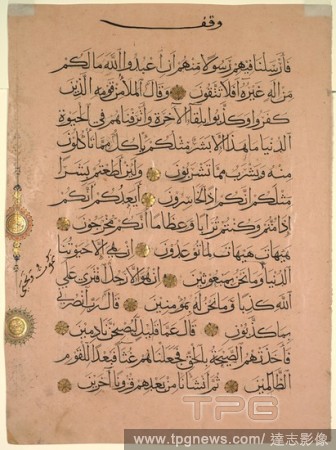 وقف
فأرسلنا فيهم رسولا منهم أن اعبدوا الله ما لكم
من إله غيره أفلا تتقون وقال الملأ من قومه الذين
كفروا وكذبوا بلقاء الآخرة وأترفناهم في الحيوة
الدنيا ما هذا إلا بشر مثلكم يأكل مما تأكلون
منه ويشرب مما تشربون ولئن أطعتم بشرا
مثلكم إنكم إذا لخاسرون أيعدكم أنكم
إذا متم وكنتم ترابا وعظاما أنكم مخرجون
هيهات هيهات لما توعدون إن هي إلا حيوتنا
الدنيا وما نحن بمبعوثين إن هو إلا رجل افترى على
الله كذبا وما نحن له بمؤمنين قال رب انصرني
بما كذبون قال عما قليل ليصبحن نادمين
فأخذتهم الصيحة بالحق فجعلناهم غثاء فبعدا للقوم
الظالمين ثم أنشأنا من بعدهم قرونا آخرين
نموت ونحيى
TPG
www.tpgnews.com / 達志影像